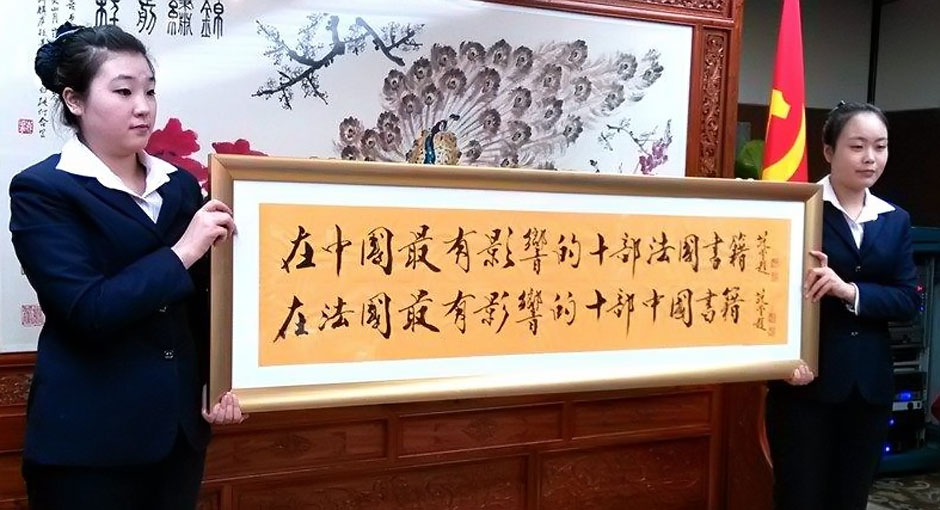 在中國最有影響的十部法國書籍
在法國最有影響的十部中國書籍